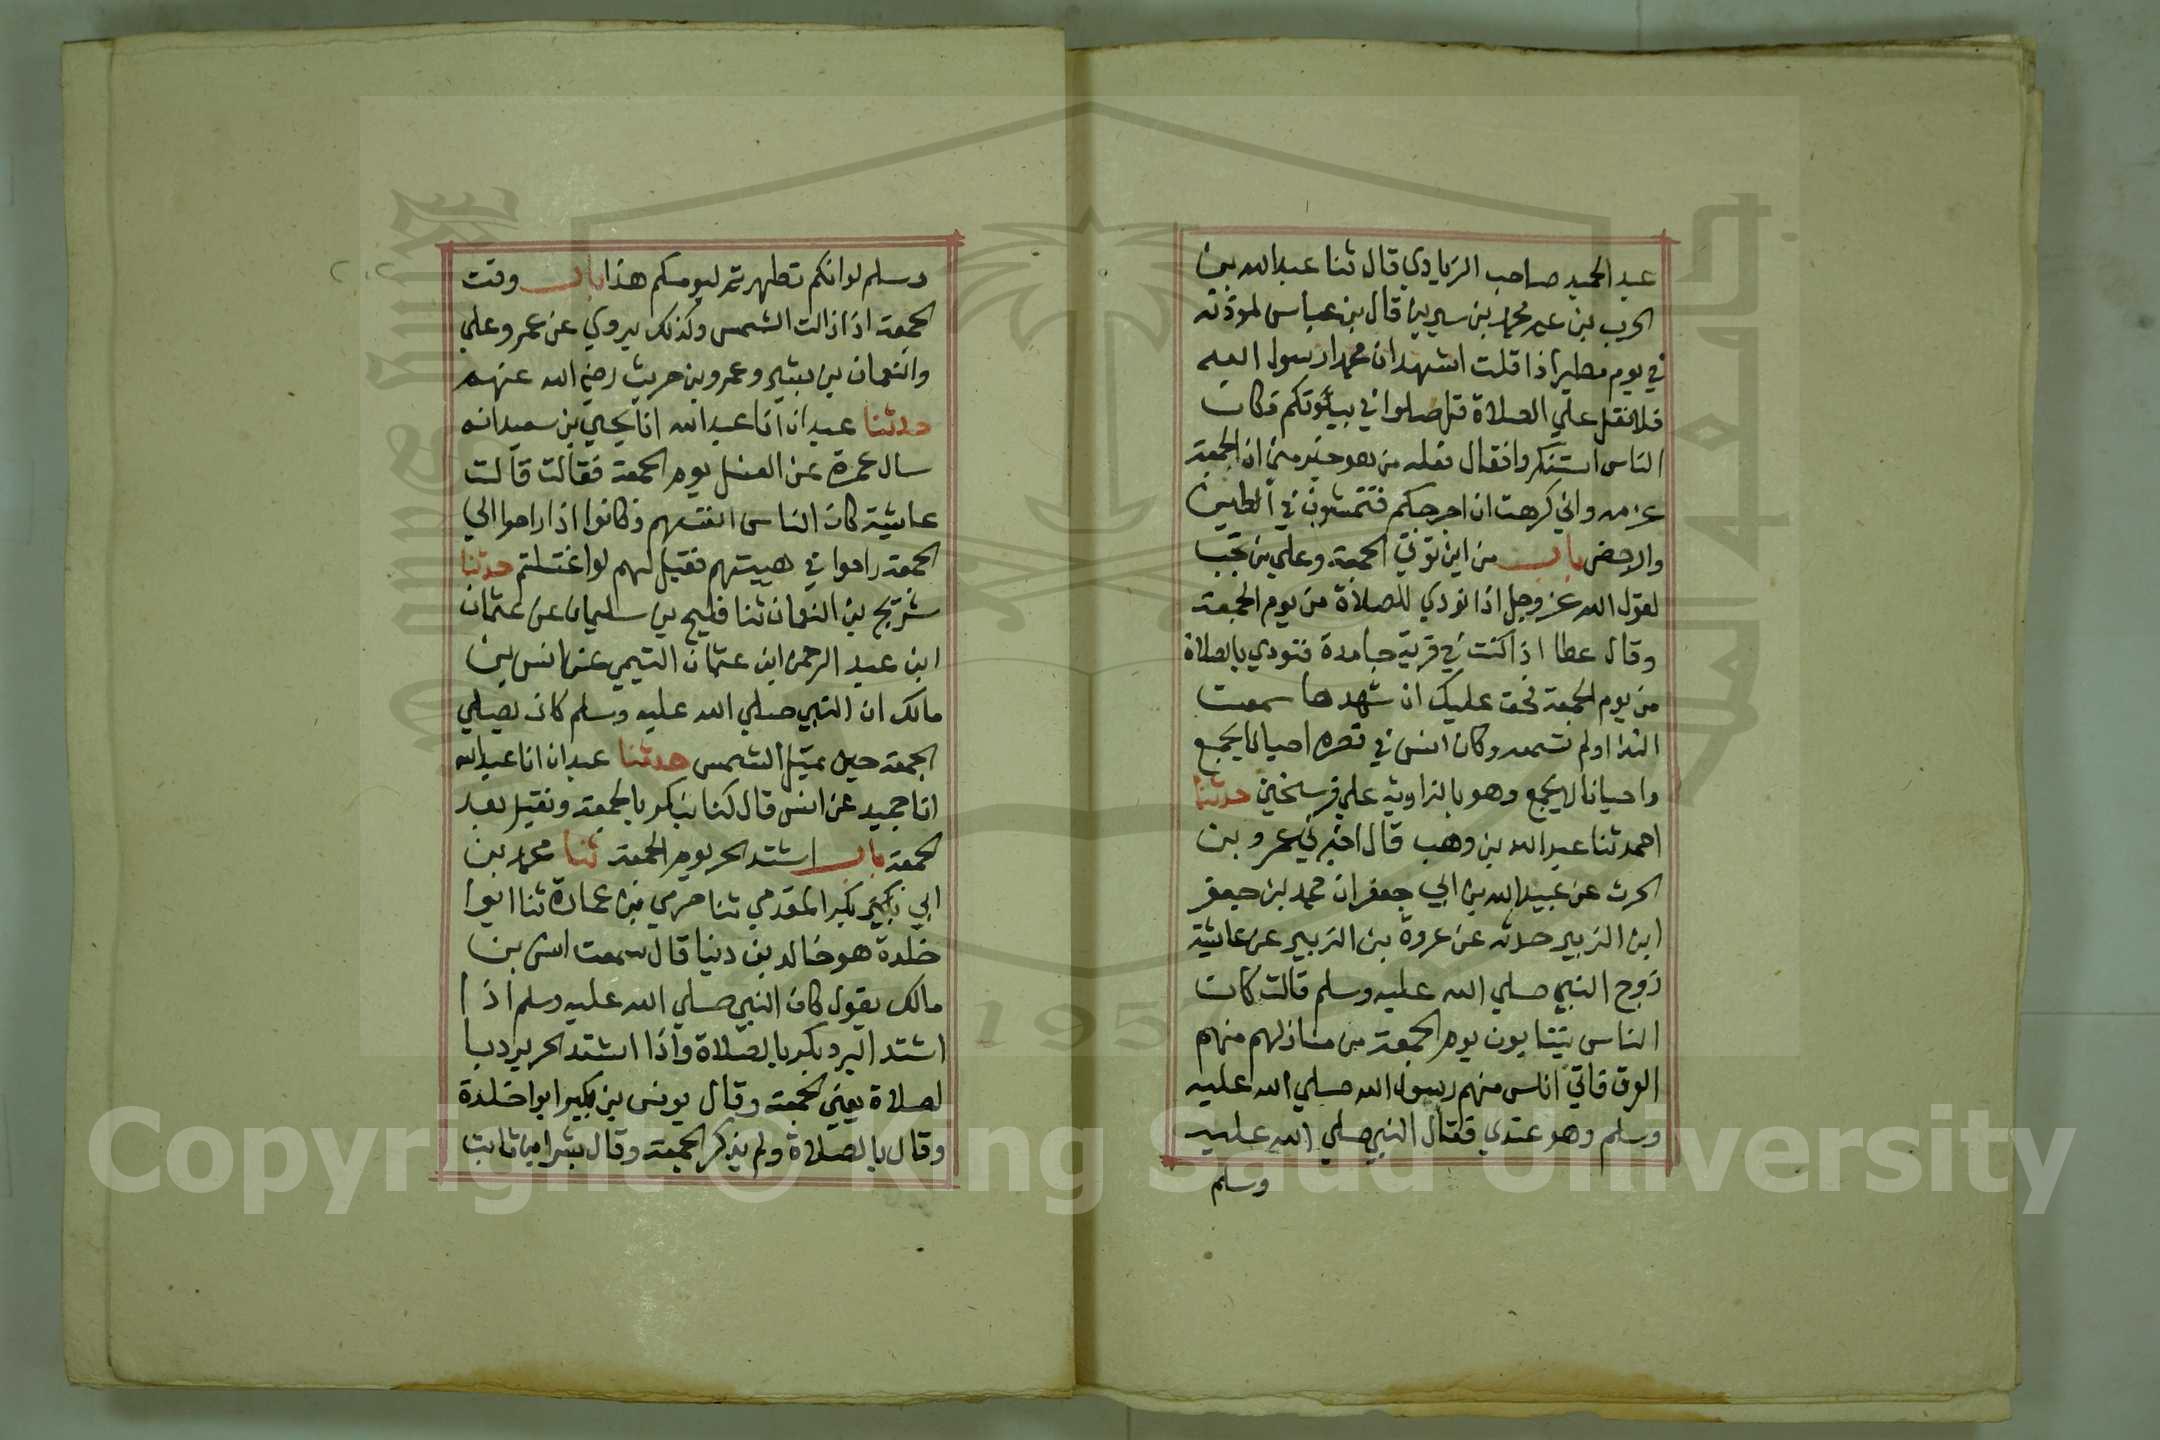 عبد الحميد صاحب الزيادي قال ثنا عبد الله بن
الحرث بن عم محمد بن سيرين قال بن عباس لموذنه
في يوم مطير اذا قلت اشهد ان محمدا رسول الله
فلا تقل علي الصلاة قل صلوا في بيوتكم فكان
الناس استنكروا فقال فعله من هو خير مني ان الجمعة
عزمه واني كرهت ان احرجكم فتمشون في الطين
والدحض باب من اين توتي الجمعة وعلي من تجب
لقول الله عز وجل اذا نودي للصلاة من يوم الجمعة
وقال عطا اذا كنت في قرية جامعة فنودي بالصلاة
من يوم الجمعة فحق عليك ان تشهدها سمعت
الندا اولم تسمعه وكان انس في قصره احيانا يجمع
واحيانا لا يجمع وهو بالزاوية علي فرسخين حدثنا
احمد ثنا عبد الله بن وهب قال اخبرني عمرو بن
الحرث عن عبيد الله بن ابي جعفر ان محمد بن جعفر
ابن الزبير حدثه عن عروة بن الزبير عن عايشة
زوج النبي صلي الله عليه وسلم قالت كان
الناس ينتابون يوم الجمعة من منازلهم منهم
العرق فاتي اناس منهم رسول الله صلي الله عليه
وسلم وهو عندي فقال النبي صلي الله عليه
وسلم
وسلم لو انكم تطهرتم ليومكم هذا باب وقت
الجمعة اذا زالت الشمس وكذلك يروي عن عمر وعلي
والنعمان بن بشير وعمرو بن حريث رضي الله عنهم
حدثنا عبدان انا عبد الله انا يحيي بن سعيد انه
سال عمرة عن الغسل يوم الجمعة فقالت قالت
عايشة كان الناس انفسهم وكانوا اذا راحوا الي
الجمعة راحوا في هيئتهم فقيل لهم لو اغتسلتم حدثنا
شريح بن النعمان ثنا فليح بن سليمان عن عثمان
ابن عبد الرحمن ابن عثمان التيمي عن انس بن
مالك ان النبي صلي الله عليه وسلم كان يصلي
الجمعة حين تميل الشمس حدثنا عبدان انا عبد الله
انا حميد عن انس قال كنا نبكر بالجمعة ونقيل بعد
الجمعة باب اشتد الحر يوم الجمعة ثنا محمد بن
ابي بكر المقدمي ثنا حرمي بن عمارة ثنا ابوا
خلدة هو خالد بن دنيا قال سمعت انس بن
مالك يقول كان النبي صلي الله عليه وسلم اذا
اشتد البرد بكر بالصلاة واذا اشتد الحر يرد با
لصلاة يعني الجمعة وقال يونس بن بكير ابوا خلدة
وقال بالصلاة ولم يذكر الجمعة وقال بشر ابن ثابت
1957
Copyright © King Saud University